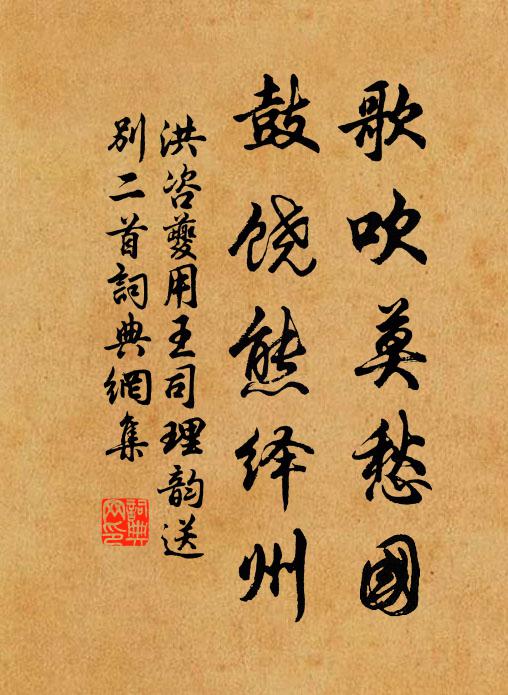 歌吹莫愁國
鼓饶熊绎州
洪咨夔用王司理韵送
别二首詞典網集
詞典网印